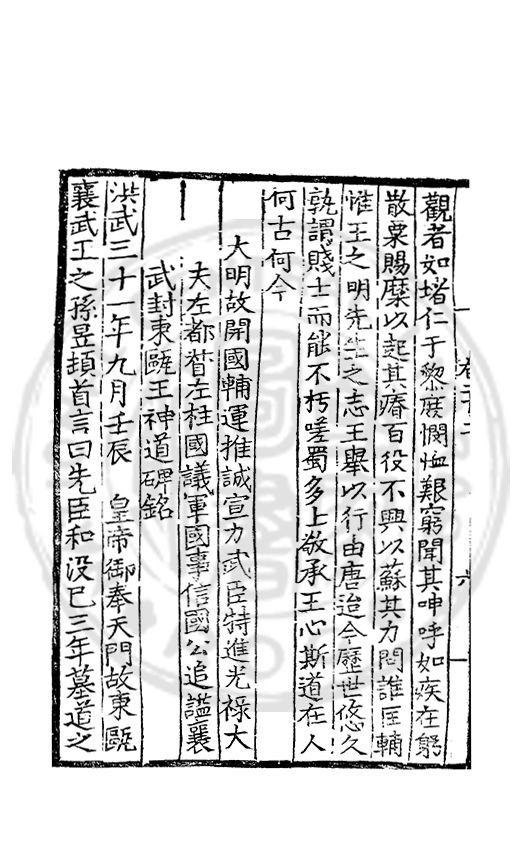 觀者如堵仁于黎庶憫恤艱窮聞其呻呼如疾在躬
散粟賜糜以起其瘠百役不興以蘇其力問誰匡輔
惟王之明先生之志王舉以行由唐迨今歷世悠久
孰謂賤士而能不朽嗟蜀多士敬承王心斯道在人
何古何今
大明故開國輔運推誠宣力武臣特進光祿大
夫左都督左柱國議軍國事信國公追謚襄
武封東甌王神道碑銘
洪武三十一年九月壬辰　皇帝御奉天門故東甌
襄武王之孫昱頓首言曰先臣和沒已三年墓道之